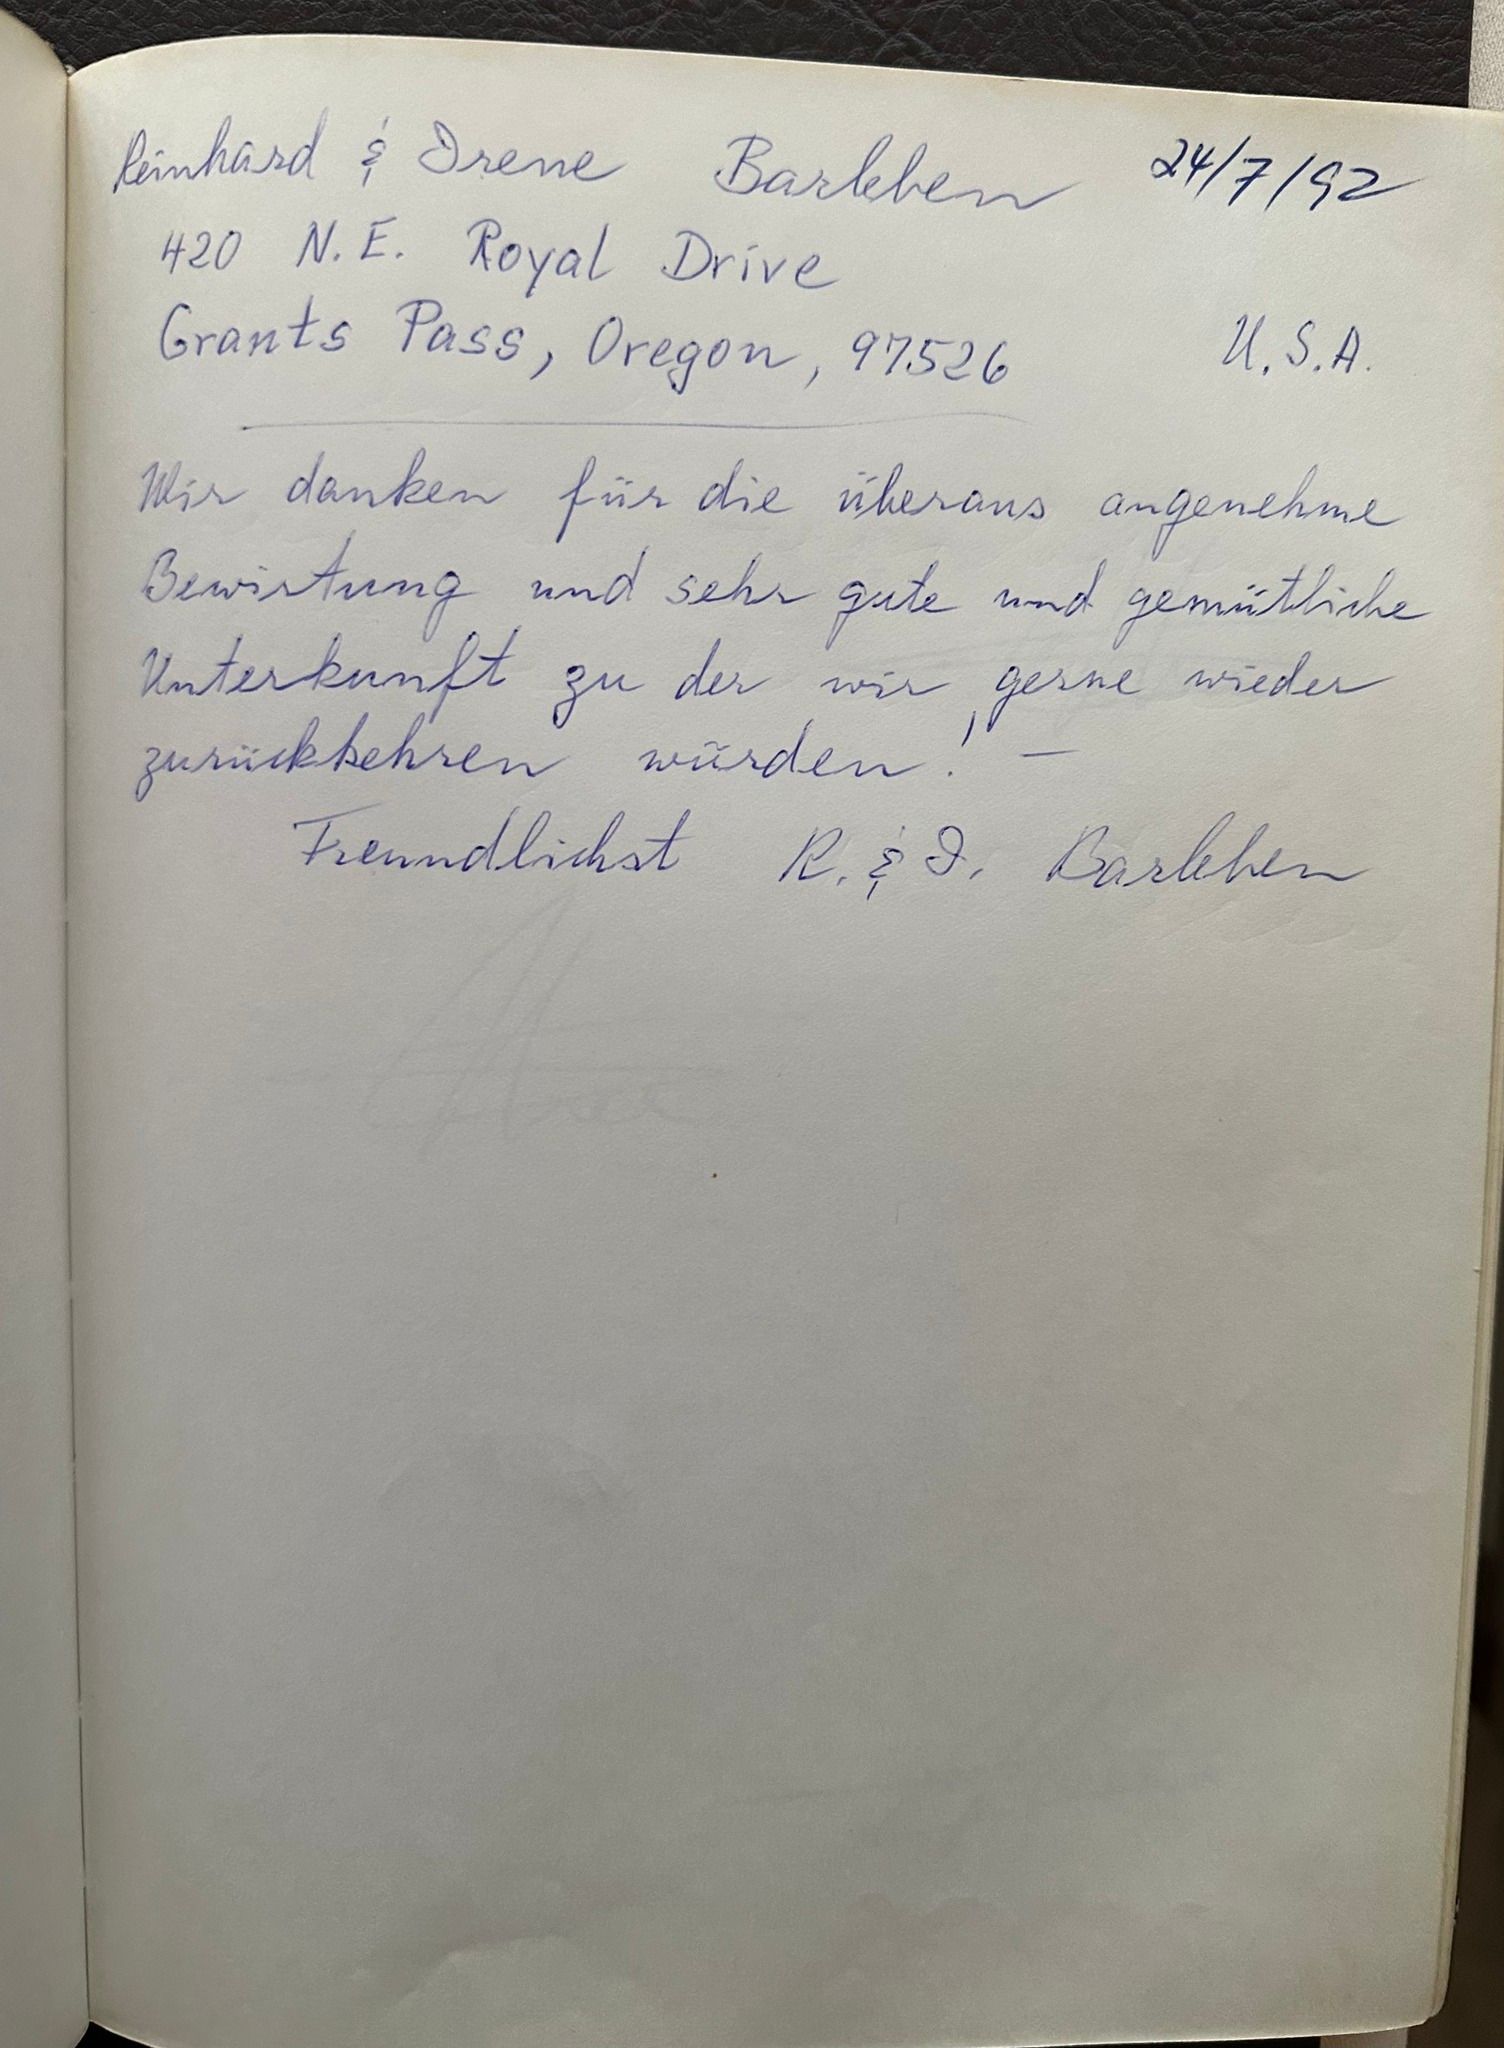 Reinhard & Irene Barleben 24/7/92
420 N.E. Royal Drive
Grants Pass, Oregon, 97526 U.S.A.
Wir danken für die überaus angenehme
Bewirtung und sehr gute und gemütliche
Unterkunft zu der wir gerne wieder
zurückkehren würden! —
Freundlichst R. & I. Barleben